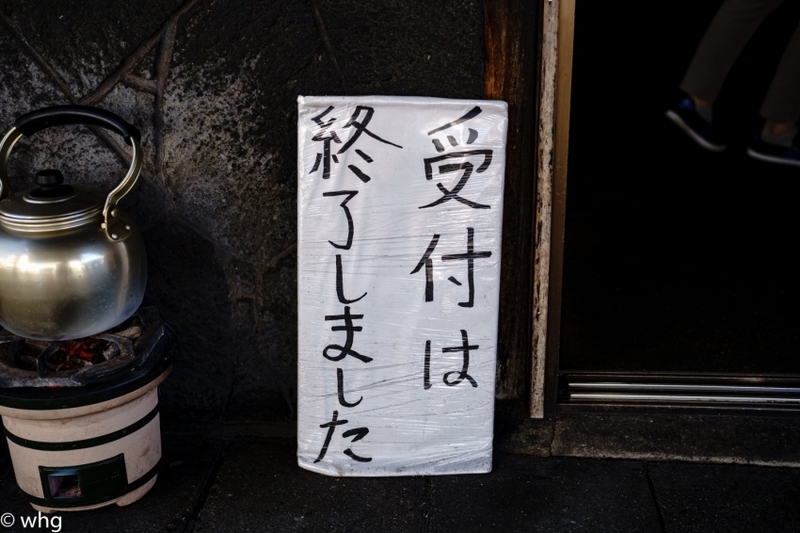 受付は
終了しました
© whg